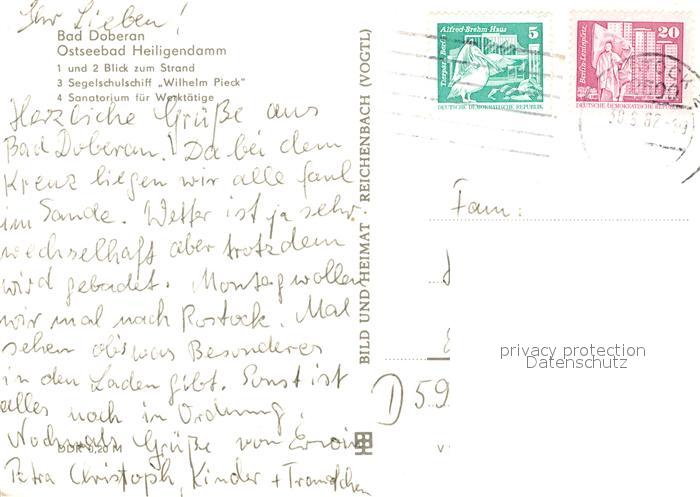 Ihr Lieben!
Bad Doberan
Ostseebad Heiligendamm
1 und 2 Blick zum Strand
3 Segelschulschiff „Wilhelm Pieck"
4 Sanatorium für Werktätige
Herzliche Grüße aus
Bad Doberan! Da bei dem
Kreuz liegen wir alle faul
im Sande. Wetter ist ja sehr
wechselhaft aber trotzdem
wird gebadet. Montag wollen
wir mal nach Rostock. Mal
sehen ob's was Besonderes
in den Laden gibt. Sonst ist
alles noch in Ordnung.
Nochmals Grüße von Erwin
Petra Christoph, Kinder +
DDR 0,20 M
BILD UND HEIMAT REICHENBACH (VOGTL)
Alfred-Brehm-Haus
Tierpark Berlin
5
DEUTSCHE DEMOKRATISCHE REPUBLIK
Berlin-Leninplatz
20
DEUTSCHE DEMOKRATISCHE REPUBLIK
Fam:
D 59
V
privacy protection
Datenschutz